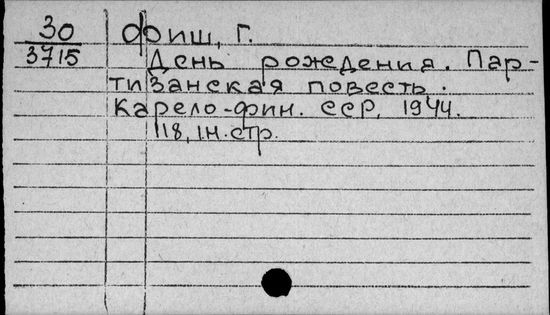 30 Фиш, Г.
3715 День рождения. Пар-
тизанская повесть.
Карело-фин. ССР, 1944.
118, 1н. стр.